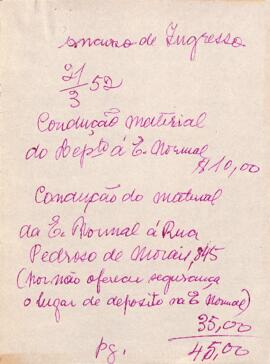 de Ingresso
21/3 52
Condução material
do Depto á E. Normal
10,00
Condução do material
da E. Normal á Rua
Pedroso de Morais, 845
(por não oferecer segurança
o lugar de deposito na E. Normal)
35,00
45,00
pg.